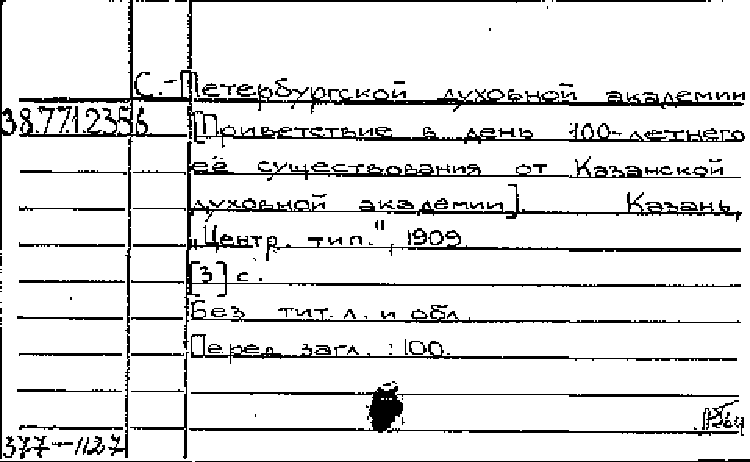 С.-Петербургской духовной академии
38.77.1.2356 [Приветствие в день 100-летнего
её существования от Казанской
духовной академии]. Казань,
„Центр. тип.", 1909.
[3] с.
Без тит. л. и обл.
Перед загл.: 100.
377-1127